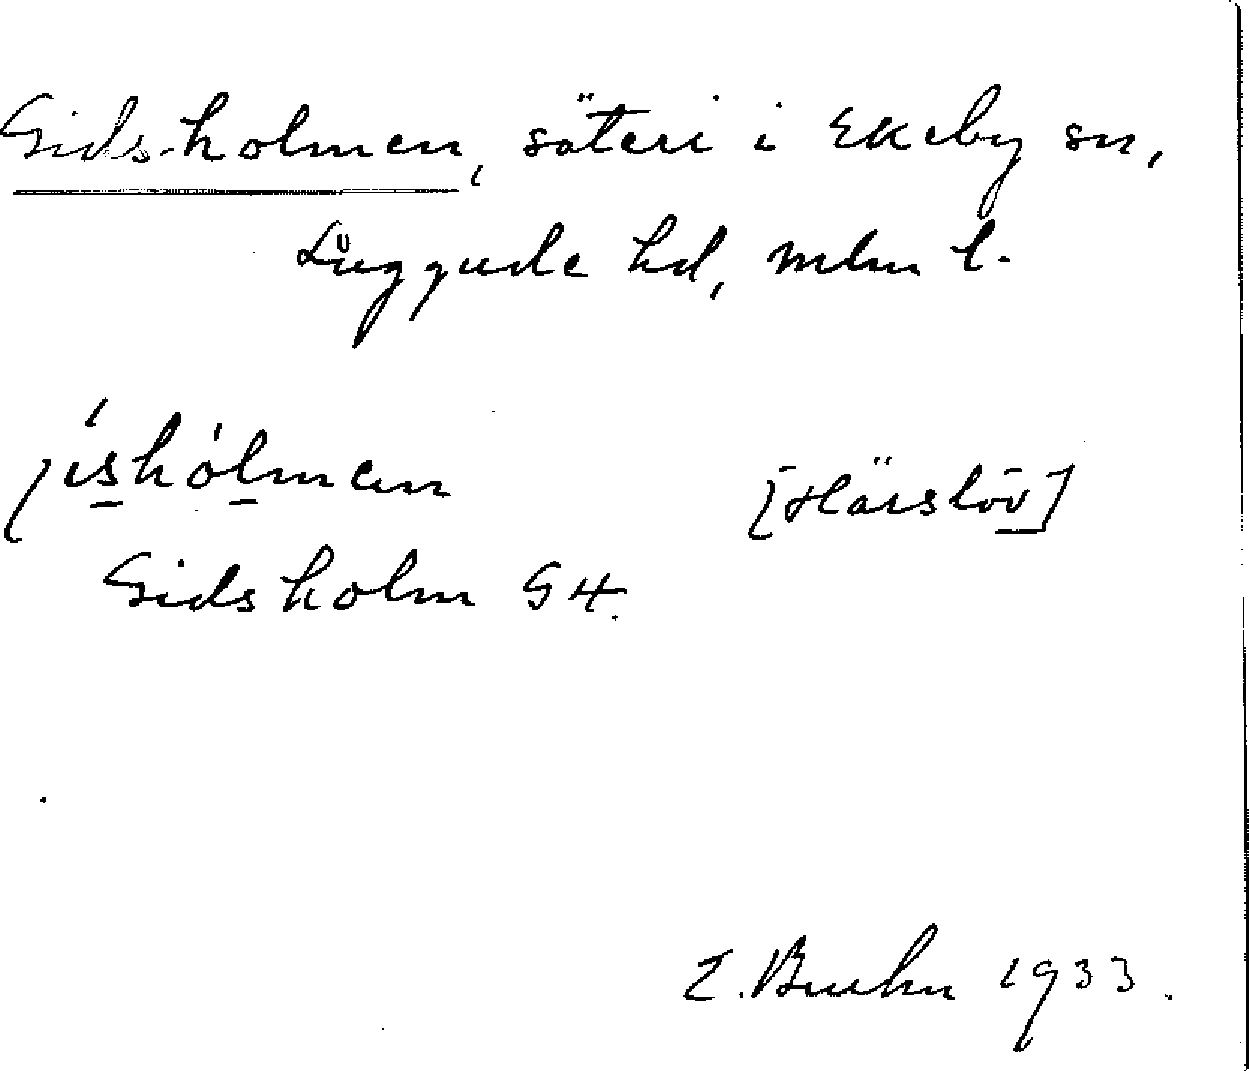 Gidsholmen, säteri i Ekeby sn,
Luggude hd, Mlm l.
jishólmen [Härslöv]
Gidsholm GK.
I. Bruhn 1933.